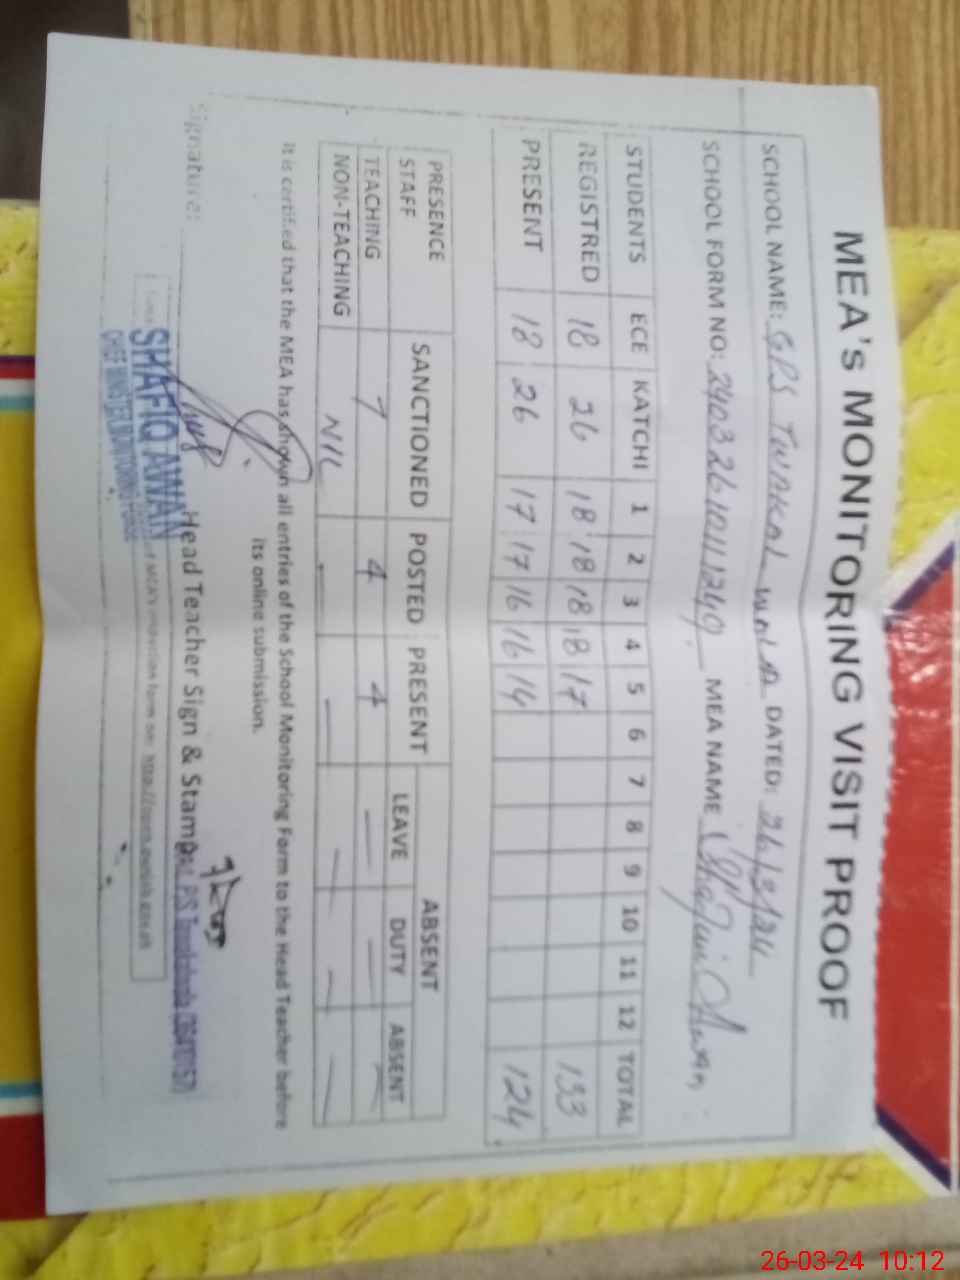 MEA's MONITORING VISIT PROOF
SCHOOL NAME: GPS TWAKAL wala DATED: 26/3/24
SCHOOL FORM NO: MEA NAME Awan
STUDENTS ECE KATCHI 1 2 3 4 5 6 7 8 9 10 11 12 TOTAL
REGISTRED 18 26 18 18 18 18 17 133
PRESENT 18 26 17 17 16 16 14 124
PRESENCE STAFF SANCTIONED POSTED PRESENT ABSENT
LEAVE DUTY ABSENT
TEACHING 7 4 4 — — —
NON-TEACHING NIL — — — — —
It is certified that the MEA has shown all entries of the School Monitoring Form to the Head Teacher before
its online submission.
Signature: Head Teacher Sign & Stamp:
SHAFIQ AWAN
CHIEF MINISTER MONITORING FORCE
26-03-24 10:12